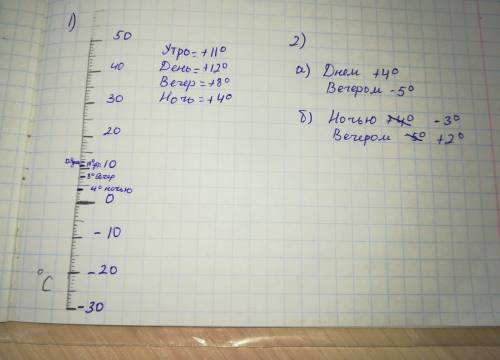 1)
50
40
30
20
10
11° ут.
8° вечер
4° ночью
0
-10
-20
°C
-30
Утро = +11°
День = +12°
Вечер = +8°
Ночь = +4°
2)
а) Днем +4°
Вечером -5°
б) Ночью +4° -3°
Вечером -5° +2°